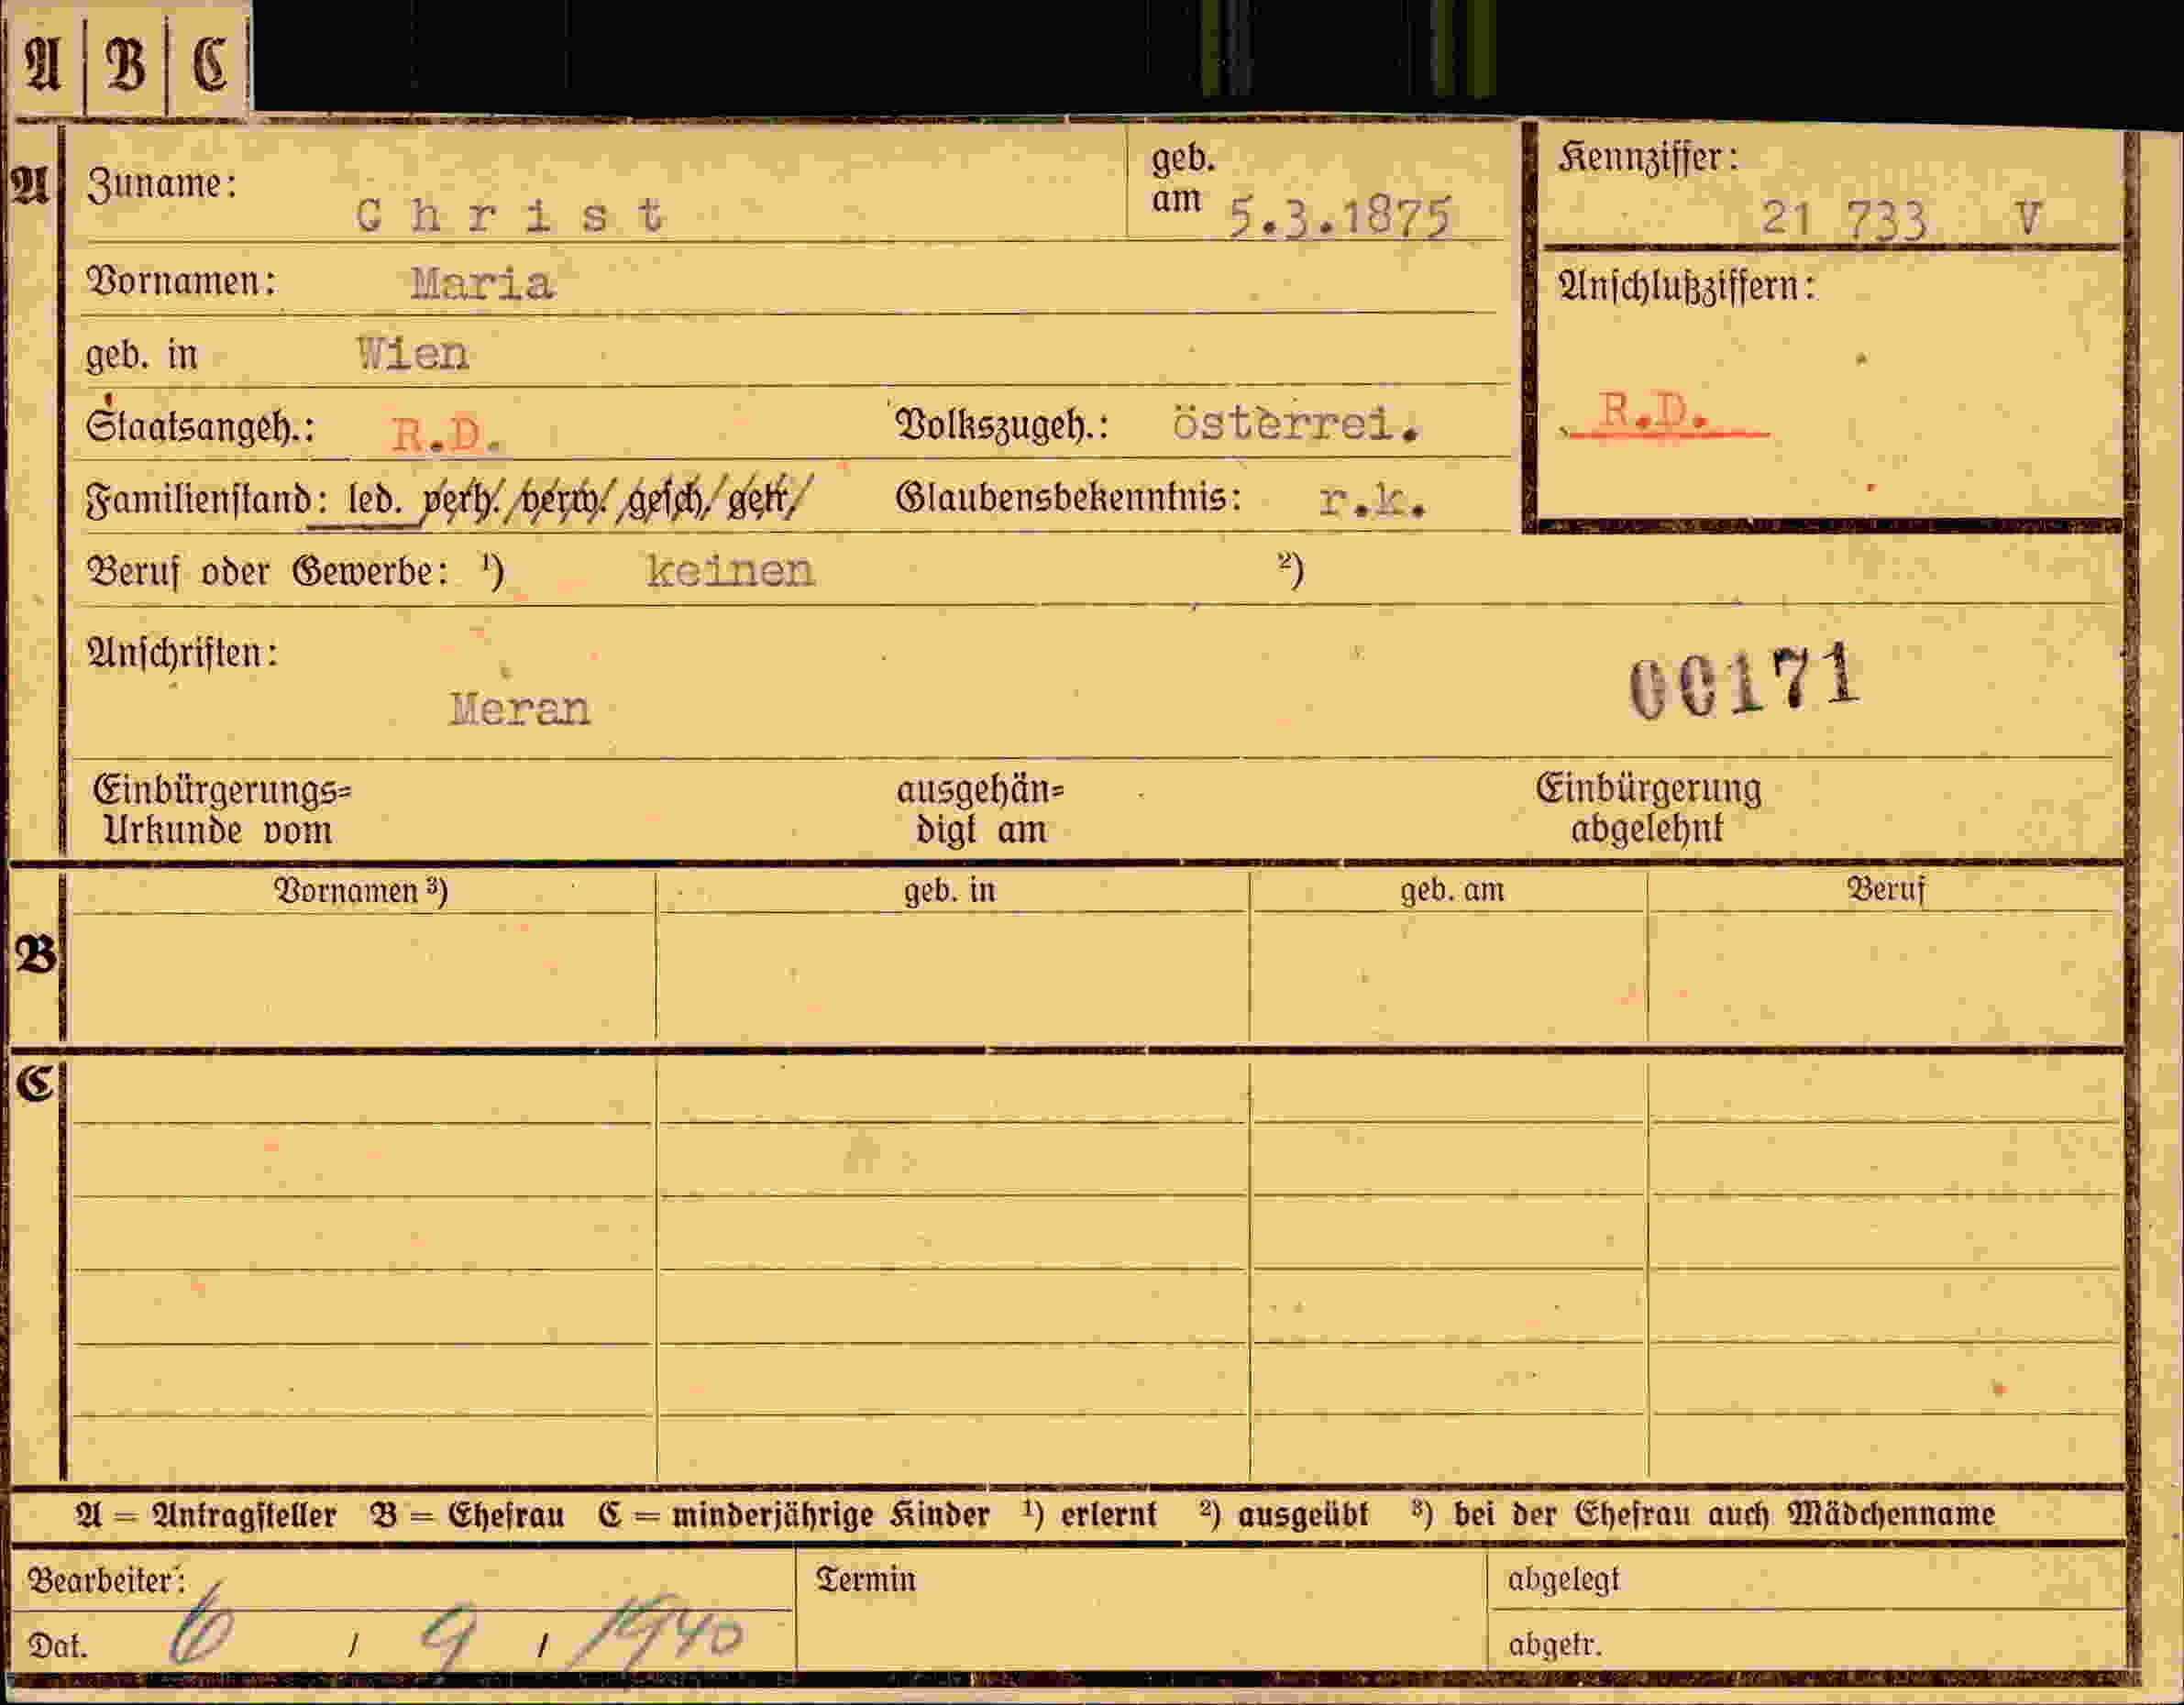 A B C
A
Zuname: Christ
geb. am 5.3.1875
Kennziffer: 21 733 V
Vornamen: Maria
Anschlußziffern:
geb. in Wien
R.D.
Staatsangeh.: R.D. Volkszugeh.: österrei.
Familienstand: led. verh./verw./gesch./getr./ Glaubensbekenntnis: r.k.
Beruf oder Gewerbe: ¹) keinen ²)
Anschriften:
Meran
00171
Einbürgerungs= Urkunde vom
ausgehän= digt am
Einbürgerung abgelehnt
B
Vornamen ³) geb. in geb. am Beruf
C
A = Antragsteller B = Ehefrau C = minderjährige Kinder ¹) erlernt ²) ausgeübt ³) bei der Ehefrau auch Mädchenname
Bearbeiter: Termin abgelegt
Dat. 6 / 9 / 1940 abgetr.